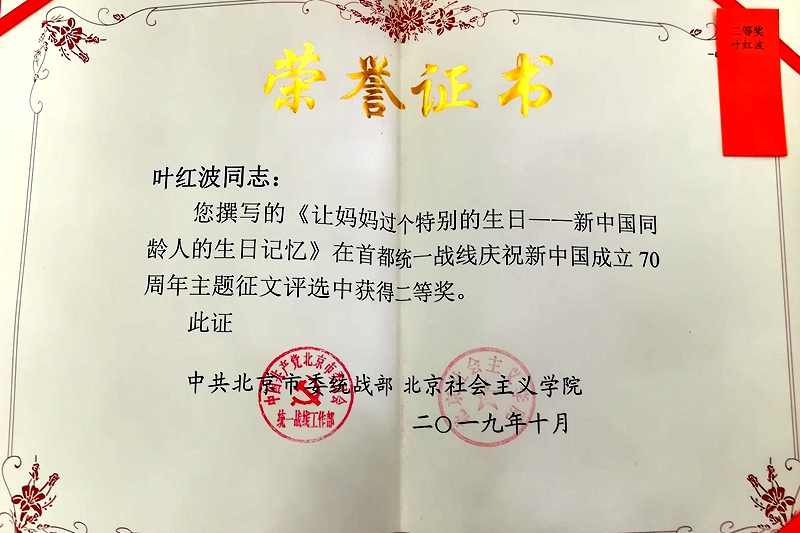 荣誉证书
二等奖
叶红波
叶红波同志：
您撰写的《让妈妈过个特别的生日——新中国同
龄人的生日记忆》在首都统一战线庆祝新中国成立70
周年主题征文评选中获得二等奖。
此证
中共北京市委统战部 北京社会主义学院
二〇一九年十月
中国共产党北京市委员会
统一战线工作部
北京社会主义学院